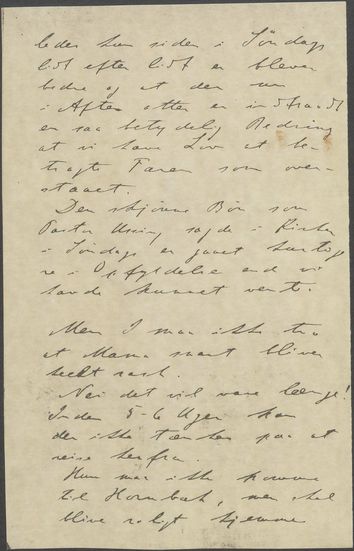 leder hun siden i Søndags
lidt efter lidt er bleven
bedre og at der nu
i Aften atter er indtraadt
en saa betydelig Bedring
at vi have Lov at be-
tragte Faren som over-
staaet.
Den skjønne Bøn som
Pastor Ussing sagde i Kirken
i Søndags er gaaet hurtige
re i Opfyldelse end vi
havde kunnet vente.
Men I maa ikke tro
at Mama snart bliver
helt rask.
Nei det vil vare længe!
Inden 5-6 Uger kan
der ikke tænkes paa at
reise herfra.
Hun maa ikke komme
til Hornbæk, men skal
blive roligt hjemme